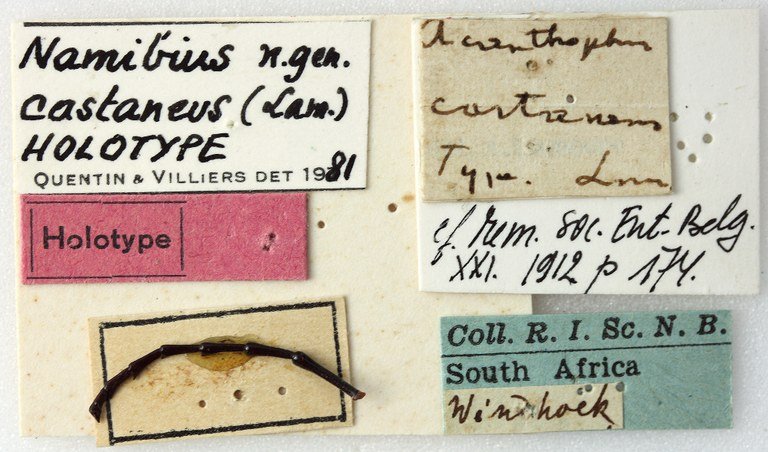 Namibius n.gen.
castaneus (Lam.)
HOLOTYPE
QUENTIN & VILLIERS DET 1981
Holotype
Acanthophor
castaneus
Type. Lm
cf. Mem. Soc. Ent. Belg.
XXI. 1912 p 174.
Coll. R. I. Sc. N. B.
South Africa
Windhoek